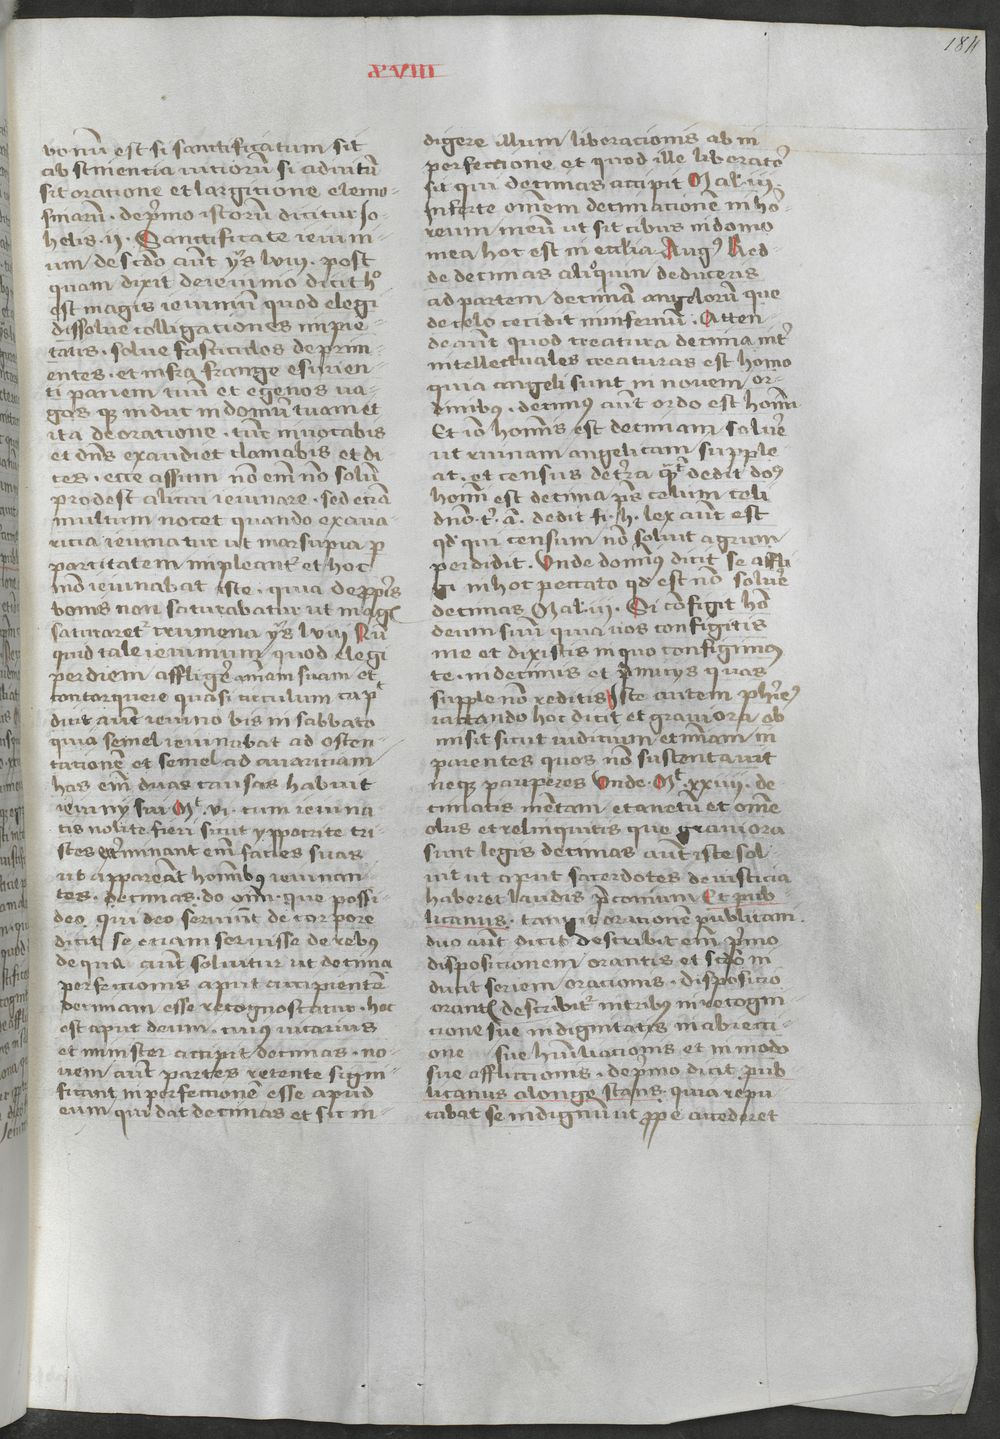 184
XVIII
bonū est si sanctificatum sit
abstinentia viciorū si adiutū
sit oratione et largitione elemo-
sinarū. de p̄mo istorū dicitur Jo-
helis .ii. Sanctificate ieiuni-
um de scdo aūt ys lviii. post
quam dixit de ieiunio dicit h°
est magis ieiuniū quod elegi
dissolue colligationes impie-
tatis. solue fasciculos deprim-
entes. et infra frange esurien-
ti panem tuū et egenos va-
gos qꝫ induc in domū tuam et
ita de oratione. tūc invocabis
et dn̄s exaudiet clamabis et di-
ces. ecce assum nō em̄ nō solū
prodest alicui ieiunare. sed eciā
multum nocet quando ex ava-
ricia ieiunatur ut marsupia p
parcitatem impleant᷑ et hoc
mō ieiunabat iste. quia de pp̄is
bonis non saturabatur ut mag᷑
saturaret᷑ crumena ys lviii Nū
quid tale ieiunium quod elegi
per diem affligē aīam suam et
contorquere quasi circulum cap᷑
dicit aūt ieiuno bis in sabbato
quia semel ieiunabat ad osten-
tationē et semel ad avariciam
has em̄ duas causas habuit
ieiunij sui M᷑. vi. cum ieiuna
tis nolite fieri sicut ypocrite tri-
stes ext̄minant em̄ facies suas
ut appareāt hom̄ibꝫ ieiunan-
tes. decimas. do om̄. que possi-
deo. qui deo serviūt de corpore
dicit se etiam servisse de rebꝫ
de qua aūt solvitur ut decima
perfectionis aput accipientē
decimam esse recognoscatur. hoc
est aput deum. cuiꝰ vicarius
et minister accipit decimas. no-
vem aūt partes retente signi-
ficant inperfectionē esse apud
eum qui dat decimas et sic in-
digere illum liberacionis ab in
perfectione et quod ille liberator᷑
sit qui decimas accipit Mal. iii.
Inferte om̄em decimacionē in hor᷑
reum meū ut sit cibus in domo
mea hoc est in ecc̄lia Augꝰ Red-
de decimas alioquin deduceris
ad partem decimā angelorū que
de celo cecidit in infernū. Atten-
de aūt quod creatura decima int᷑
intellectuales creaturas est homo
quia angeli sunt in novem or-
dinibꝫ. decimꝰ aūt ordo est hom̄
Et iō hom̄is est decimam solvē
ut ruinam angelicam supple
at. et census de t̄ra q᷑ dedit dꝰ
hom̄i est decima ps̄ celum celi
dn̄o. t᷑. a. dedit fi. h. lex aūt est
qd qui censum nō solvit agrum
perdidit. Unde dominꝰ dicit se affli
gi in hoc peccato qd est nō solvē
decimas Mal. iii. Si cōfigit hō
deum suū quia vos configitis
me et dixistis in quo configimꝰ
te. in decimis et p̄micijs quas
supple nō redditis Iste autem pharisꝰ
iactando hoc dicit et graviora ob
misit sicut iudicium et m̄iam in
parentes quos nō sustentavit
neqꝫ pauperes Unde. M᷑. xxiii. de
cimatis mētam et anetū et om̄e
olus et relinquitis que graviora
sunt legis decimas aūt iste sol-
vit ut aput sacerdotes de iusticia
haberet laudis p̄conium Et pub-
licanus. tangit orationē publicani.
duo aūt dicit describit em̄ p̄mo
dispositionem orantis et scdo in
ducit seriem oracionis. dispositio
orant᷑ describit᷑ in tribus in recogni
cione sue indignitatis in abiecti-
one sue humiliacionis et in modo
sue afflictionis. de p̄mo dicit pub
licanus alonge stans. quia repu
tabat se indignū ut ꝓpe accederet